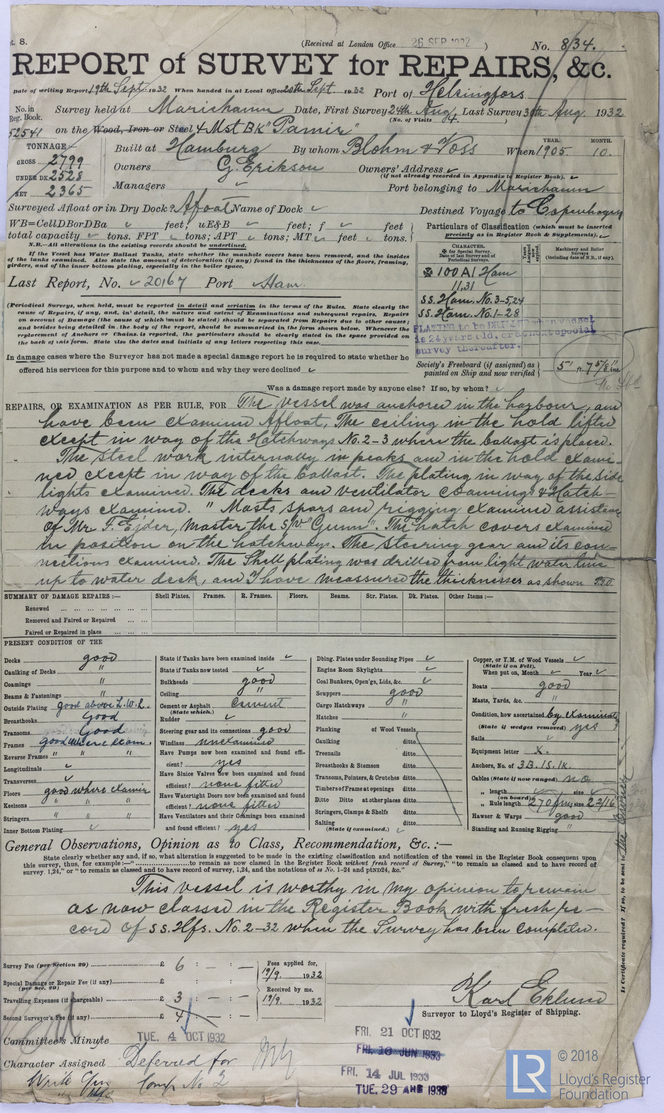 (Received at London Office 26 SEP 1932)
No. 8134.
REPORT of SURVEY for REPAIRS, &c.
Date of writing Report 19th Sept. 1932 When handed in at Local Office 20th Sept. 1932 Port of Helsingfors.
No. in Reg. Book. Survey held at Mariehamn Date, First Survey 24th Aug. Last Survey 30th Aug. 1932
(No. of Visits 4)
52541 on the Wood, Iron or Steel 4 Mst BK "Pamir"
TONNAGE
GROSS 2799
UNDER DK 2528
NET 2365
Built at Hamburg By whom Blohm & Voss When 1905 MONTH. 10.
YEAR.
Owners G. Erikson Owners' Address
(if not already recorded in Appendix to Register Book).
Managers Port belonging to Mariehamn
Surveyed Afloat or in Dry Dock? Afloat Name of Dock Destined Voyage to Copenhagen
WB=CellDBorDBa feet; uE&B feet; f feet
total capacity tons. FPT tons; APT tons; MT feet tons.
N.B.-All alterations in the existing records should be underlined.
If the Vessel has Water Ballast Tanks, state whether the manhole covers have been removed, and the insides
of the tanks examined. Also state the amount of deterioration (if any) found in the thicknesses of the floors, framing,
girders, and of the inner bottom plating, especially in the boiler space.
Particulars of Classification (which must be inserted
precisely as in Register Book & Supplements).
CHARACTER.
for Special Survey
Date of last Survey and of
Periodical Surveys.
Machinery and Boiler
Surveys
(including date of N.B., if any).
100 A1 Ham
11.31
SS. Ham. No. 3-5,24
SS. Ham. No. 1-28
Last Report, No. 20167 Port Ham.
(Periodical Surveys, when held, must be reported in detail and seriatim in the terms of the Rules. State clearly the
cause of Repairs, if any, and, in detail, the nature and extent of Examinations and subsequent repairs. Repairs
on account of Damage (the cause of which must be stated) should be separated from Repairs due to other causes;
and besides being detailed in the body of the report, should be summarised in the form shown below. Whenever the
replacement of Anchors or Chains is reported, the particulars should be clearly stated in the space provided on
the back of this form. State also the dates and initials of any letters respecting this case.
In damage cases where the Surveyor has not made a special damage report he is required to state whether he
offered his services for this purpose and to whom and why they were declined
Society's Freeboard (if assigned) as
painted on Ship and now verified
Was a damage report made by anyone else? If so, by whom?
REPAIRS, OR EXAMINATION AS PER RULE, FOR The vessel was anchored in the harbour, and
have been examined Afloat. The ceiling in the hold lifted
except in way of the Hatchways No. 2-3 where the ballast is placed.
The steel work internally in peaks and in the hold exami-
ned except in way of the ballast. The plating in way of the side
lights examined. The decks and ventilator coamings & Hatch-
ways examined. " Masts spars and rigging examined
of Mr master the The hatch covers examined
in position on the hatchways. The steering gear and its con-
nections examined. The Shell plating was drilled from light water line
up to water deck, and I have meassured the thicknesses as shown
SUMMARY OF DAMAGE REPAIRS :-
Shell Plates. Frames. R. Frames. Floors. Beams. Str. Plates. Dk. Plates. Other Items:-
Renewed
Removed and Faired or Repaired
Faired or Repaired in place
PRESENT CONDITION OF THE
Decks good
Caulking of Decks "
Coamings "
Beams & Fastenings "
Outside Plating good above L.W.L.
Breasthooks Good
Transoms Good
Frames good where exam.
Reverse Frames "
Longitudinals
Transverses
Floors good where examin
Keelsons " "
Stringers " "
Inner Bottom Plating
State if Tanks have been examined inside
State if Tanks now tested
Bulkheads good
Ceiling "
Cement or Asphalt (State which.) Cement
Rudder
Steering gear and its connections good
Windlass unexamined
Have Pumps now been examined and found efficient? yes
Have Sluice Valves now been examined and found efficient? none fitted
Have Watertight Doors now been examined and found efficient? none fitted
Have Ventilators and their Coamings been examined and found efficient? yes
Dblng. Plates under Sounding Pipes
Engine Room Skylights
Coal Bunkers, Open'gs, Lids, &c.
Scuppers good
Cargo Hatchways "
Hatches "
Planking of Wood Vessels
Caulking ditto
Treenails ditto
Breasthooks & Stemson ditto
Transoms, Pointers, & Crutches ditto
Timbers of Frame at openings ditto
Ditto Ditto at other places ditto
Stringers, Clamps & Shelfs ditto
Salting ditto
(State if examined.)
Copper, or Y.M. of Wood Vessels
(State if on Felt).
When put on, Month Year
Boats good
Masts, Yards, &c. "
Condition, how ascertained by examinat.
(State if wedges removed) yes
Sails
Equipment letter X.
Anchors, No. of 3B. 1S. 1K.
Cables (State if now ranged) no
" length (on board) size
" Rule length 270 fms size 2 2/16
Hawser & Warps good
Standing and Running Rigging "
General Observations, Opinion as to Class, Recommendation, &c. :-
State clearly whether any and, if so, what alteration is suggested to be made in the existing classification and notification of the vessel in the Register Book consequent upon
this survey, thus, for example:- "to remain as now classed in the Register Book without fresh record of Survey," "to remain as classed and to have record of
survey 1,24," or "to remain as classed and to have record of survey, 1,24, and the notations of ss No. 1-24 and ptND24, &c."
This vessel is worthy in my opinion to remain
as now classed in the Register Book with fresh re-
cord of SS. Hfs. No. 2-32 when the Survey has been completed.
Survey Fee (per Section 20) £ 6 : - : -
Special Damage or Repair Fee (if any) £ : :
(per Sec. 20)
Travelling Expenses (if chargeable) £ 3 : - : -
Second Surveyor's Fee (if any) £ 4 : - : -
Fees applied for,
19/9. 1932
Received by me,
19/9. 1932
Karl Eklund
Surveyor to Lloyd's Register of Shipping.
Committee's Minute TUE. 4 OCT 1932
FRI. 21 OCT 1932
FRI. 10 JUN 1933
FRI. 14 JUL 1933
TUE. 29 AUG 1933
Character Assigned Deferred for
comp. No 2
© 2018
Lloyd's Register
Foundation
LR